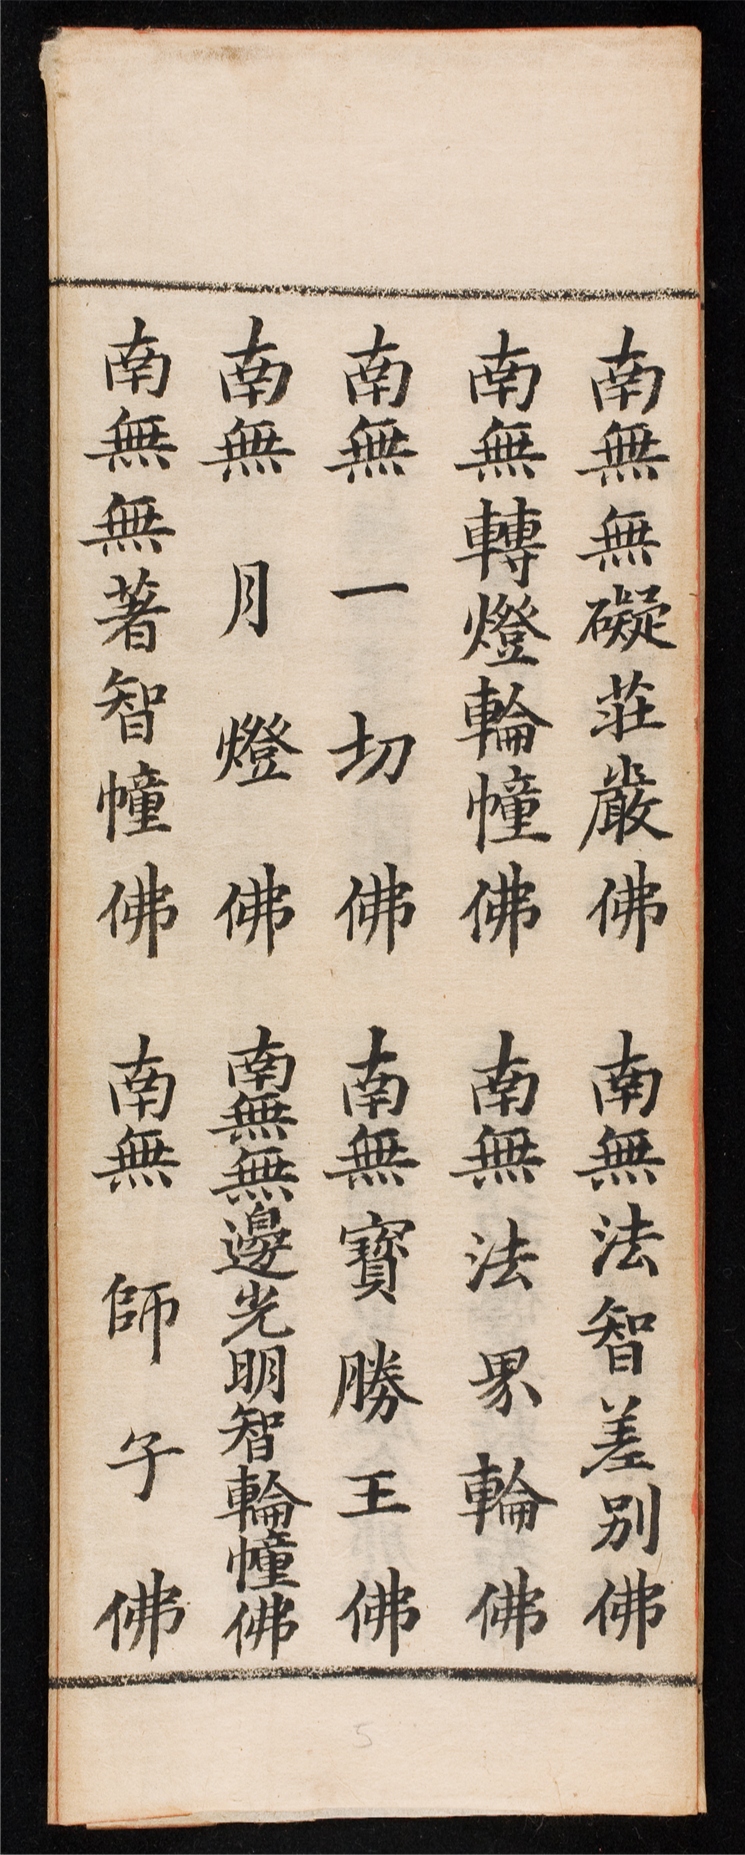 南無無礙莊嚴佛 南無法智差別佛
南無轉燈輪幢佛 南無法界輪佛
南無一切佛 南無寶勝王佛
南無月燈佛 南無無邊光明智輪幢佛
南無無著智幢佛 南無師子佛
5